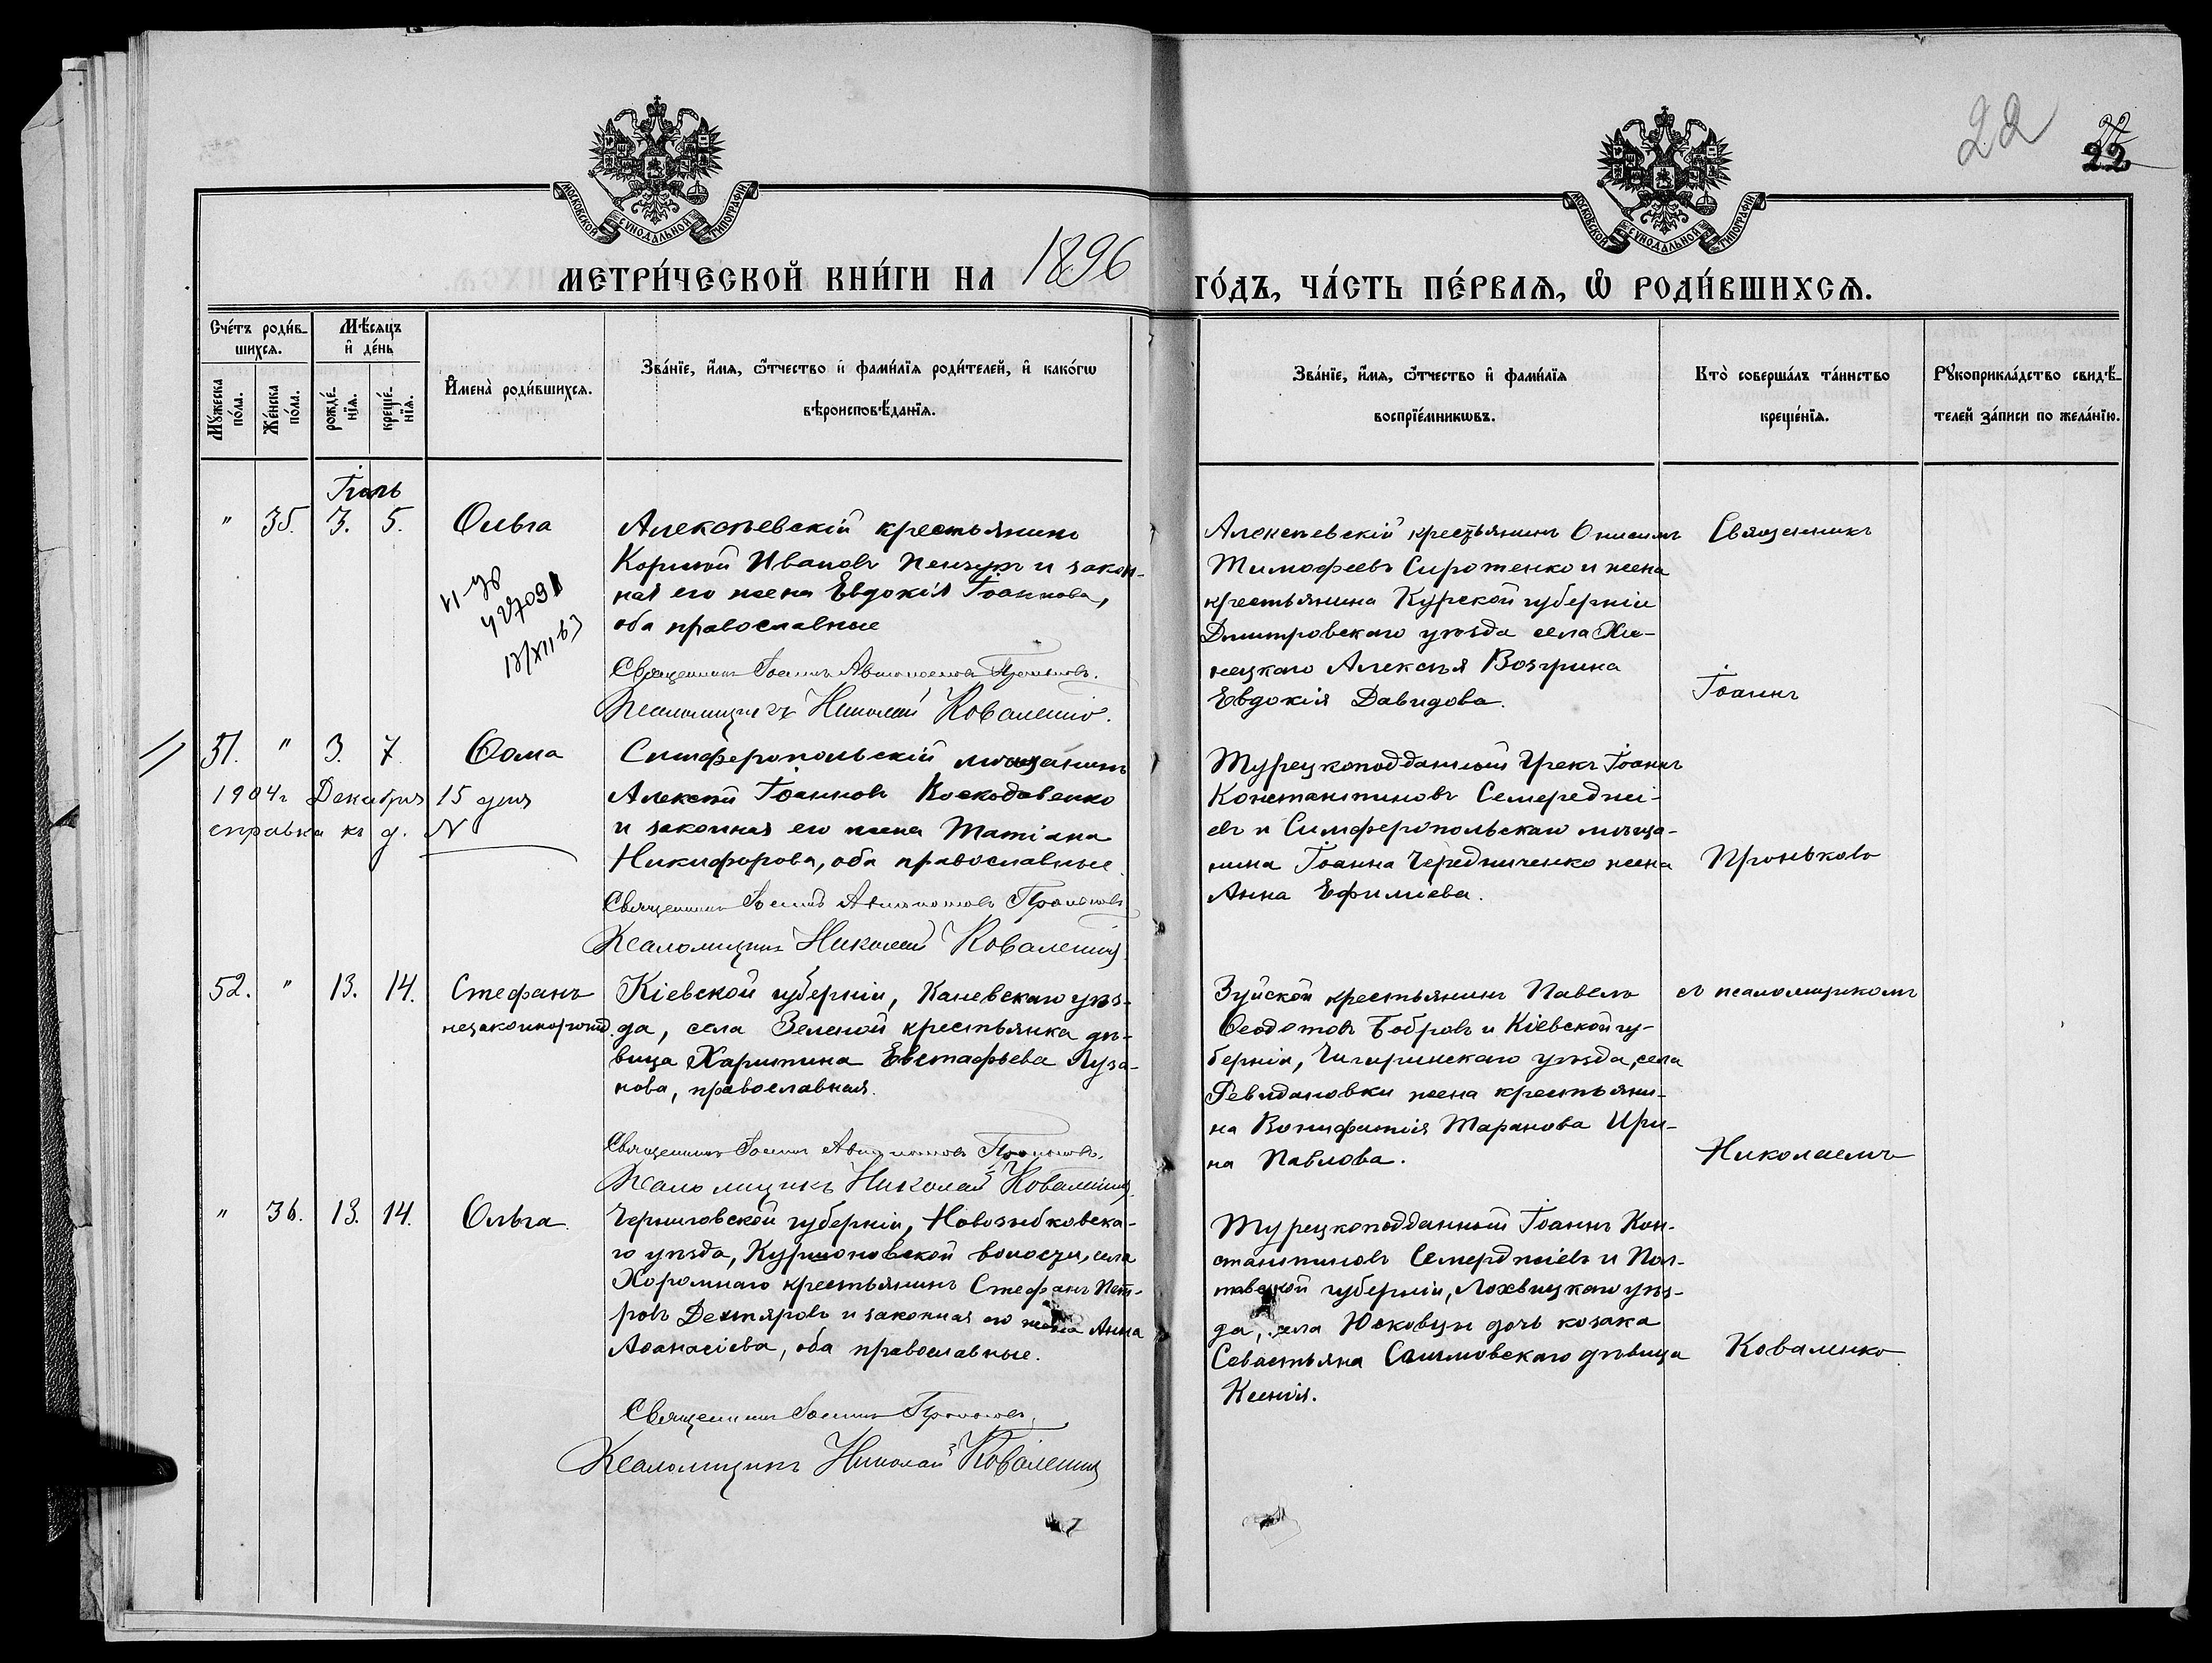 22
22
МОСКОВСКОЙ СѴНОДАЛЬНОЙ ТИПОГРАФІИ
МОСКОВСКОЙ СѴНОДАЛЬНОЙ ТИПОГРАФІИ
МЕТРИ́ЧЕСКОЙ КНИ́ГИ НА 1896 ГО́ДЪ, ЧА́СТЬ ПЕ́РВАѦ, Ѡ҆ РОДИ́ВШИХСѦ.
Сче́тъ роди́в-
шихсѧ.
Мꙋ́жеска по́ла.
Же́нска по́ла.
Мѣ́сѧцъ
и҆ де́нь
рожде́-
нїѧ.
креще́-
нїѧ.
И҆мена̀ роди́вшихсѧ.
Зва́нїе, и҆́мѧ, ѻ҆́тчество и҆ фами́лїѧ роди́телей, и҆ како́гѡ
вѣроисповѣ́данїѧ.
Зва́нїе, и҆́мѧ, ѻ҆́тчество и҆ фами́лїѧ
воспрїе́мникѡвъ.
Кто̀ соверша́лъ та́инство
креще́нїѧ.
Рꙋкоприкла́дство свидѣ́-
телей за́писи по жела́нїю.
Іюль
" 35. 3. 5. Ольга
Алексѣевскій крестьянинъ
Корнилій Ивановъ и закон-
ная его жена Евдокія Іоаннова,
оба православные
Священникъ Іоаннъ Автономовъ Проньковъ.
Псаломщикъ Николай Коваленко.
Алексѣевскій крестьянинъ Онисимъ
Тимофеевъ Сиротенко и жена
крестьянина Курской губерніи
Дмитровскаго уѣзда села Хли-
нецкаго Алексѣя Возгрина
Евдокія Давидова.
Священникъ
Іоаннъ
51. " 3. 7. Ѳома
1904г Декабря 15 дня
справка къ д. N
Симферопольскій мѣщанинъ
Алексѣй Іоанновъ Воскодавенко
и законная его жена Татіана
Никифорова, оба православные.
Священникъ Іоаннъ Автономовъ Проньковъ
Псаломщикъ Николай Коваленко
Турецкоподданный Грекъ Іоаннъ
Константиновъ Семереджі-
евъ и Симферопольскаго мѣща-
нина Іоанна Чередниченко жена
Анна Ефиміева.
Проньковъ
52. " 13. 14. Стефанъ
незаконнорожд.
Кіевской губерніи, Каневскаго уѣз-
да, села Зеленой крестьянка дѣ-
вица Харитина Евстафьева Луза-
нова, православная.
Священникъ Іоаннъ Автономовъ Проньковъ.
Псаломщикъ Николай Коваленко
Зуйской крестьянинъ Павелъ
Ѳеодотовъ Бобровъ и Кіевской гу-
берніи, Чигиринскаго уѣзда, села
Ревидановки жена крестьяни-
на Вонифатія Таранова Ири-
на Павлова.
съ псаломщикомъ
Николаемъ
" 36. 13. 14. Ольга.
Черниговской губерніи, Новозыбковска-
го уѣзда, волости, села
Хоромнаго крестьянинъ Стефанъ Пет-
ровъ Дехтяровъ и законная его жена Анна
Аѳанасіева, оба православные.
Священникъ Іоаннъ Проньковъ
Псаломщикъ Николай Коваленко
Турецкоподданный Іоаннъ Кон-
стантиновъ Семерджіевъ и Пол-
тавской губерніи, Лохвицкаго уѣз-
да, села Юсковцы дочь козака
Севастьяна дѣвица
Ксенія.
Коваленко